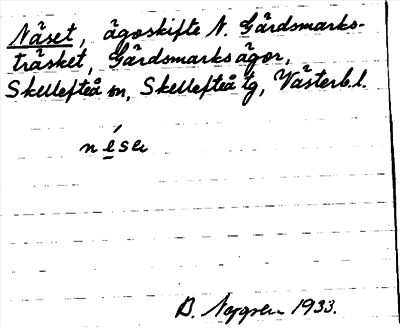 Näset, ägoskifte N. Gärdsmarks-
träsket, Gärdsmarks ägor,
Skellefteå sn, Skellefteå tg, Västerb.l.
1933.